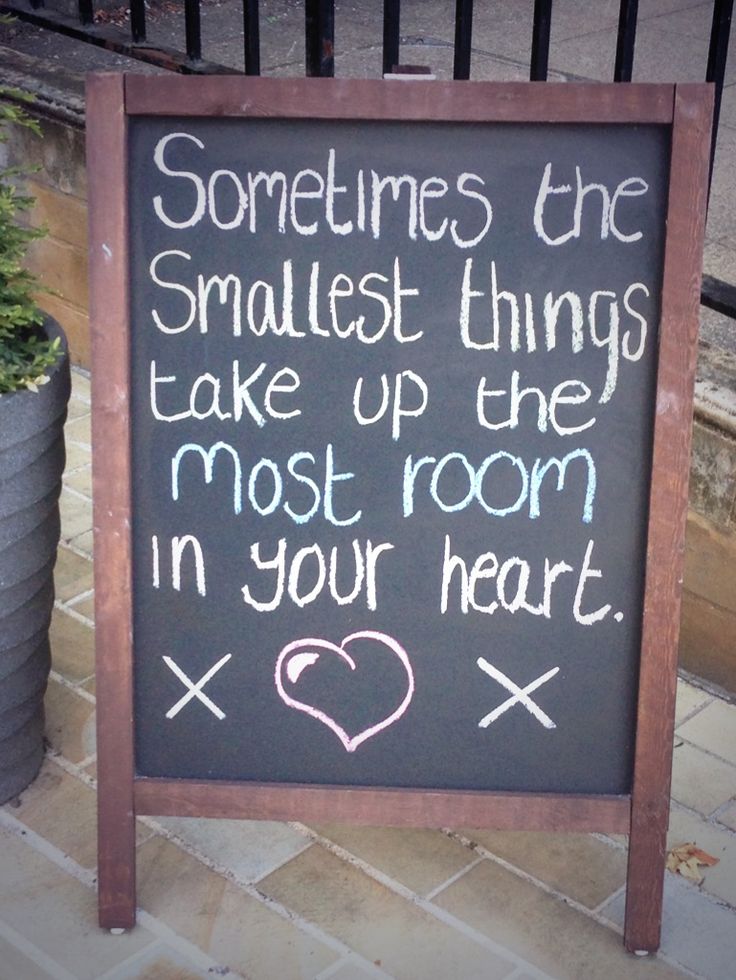 Sometimes the
Smallest things
take up the
most room
in your heart.
x x